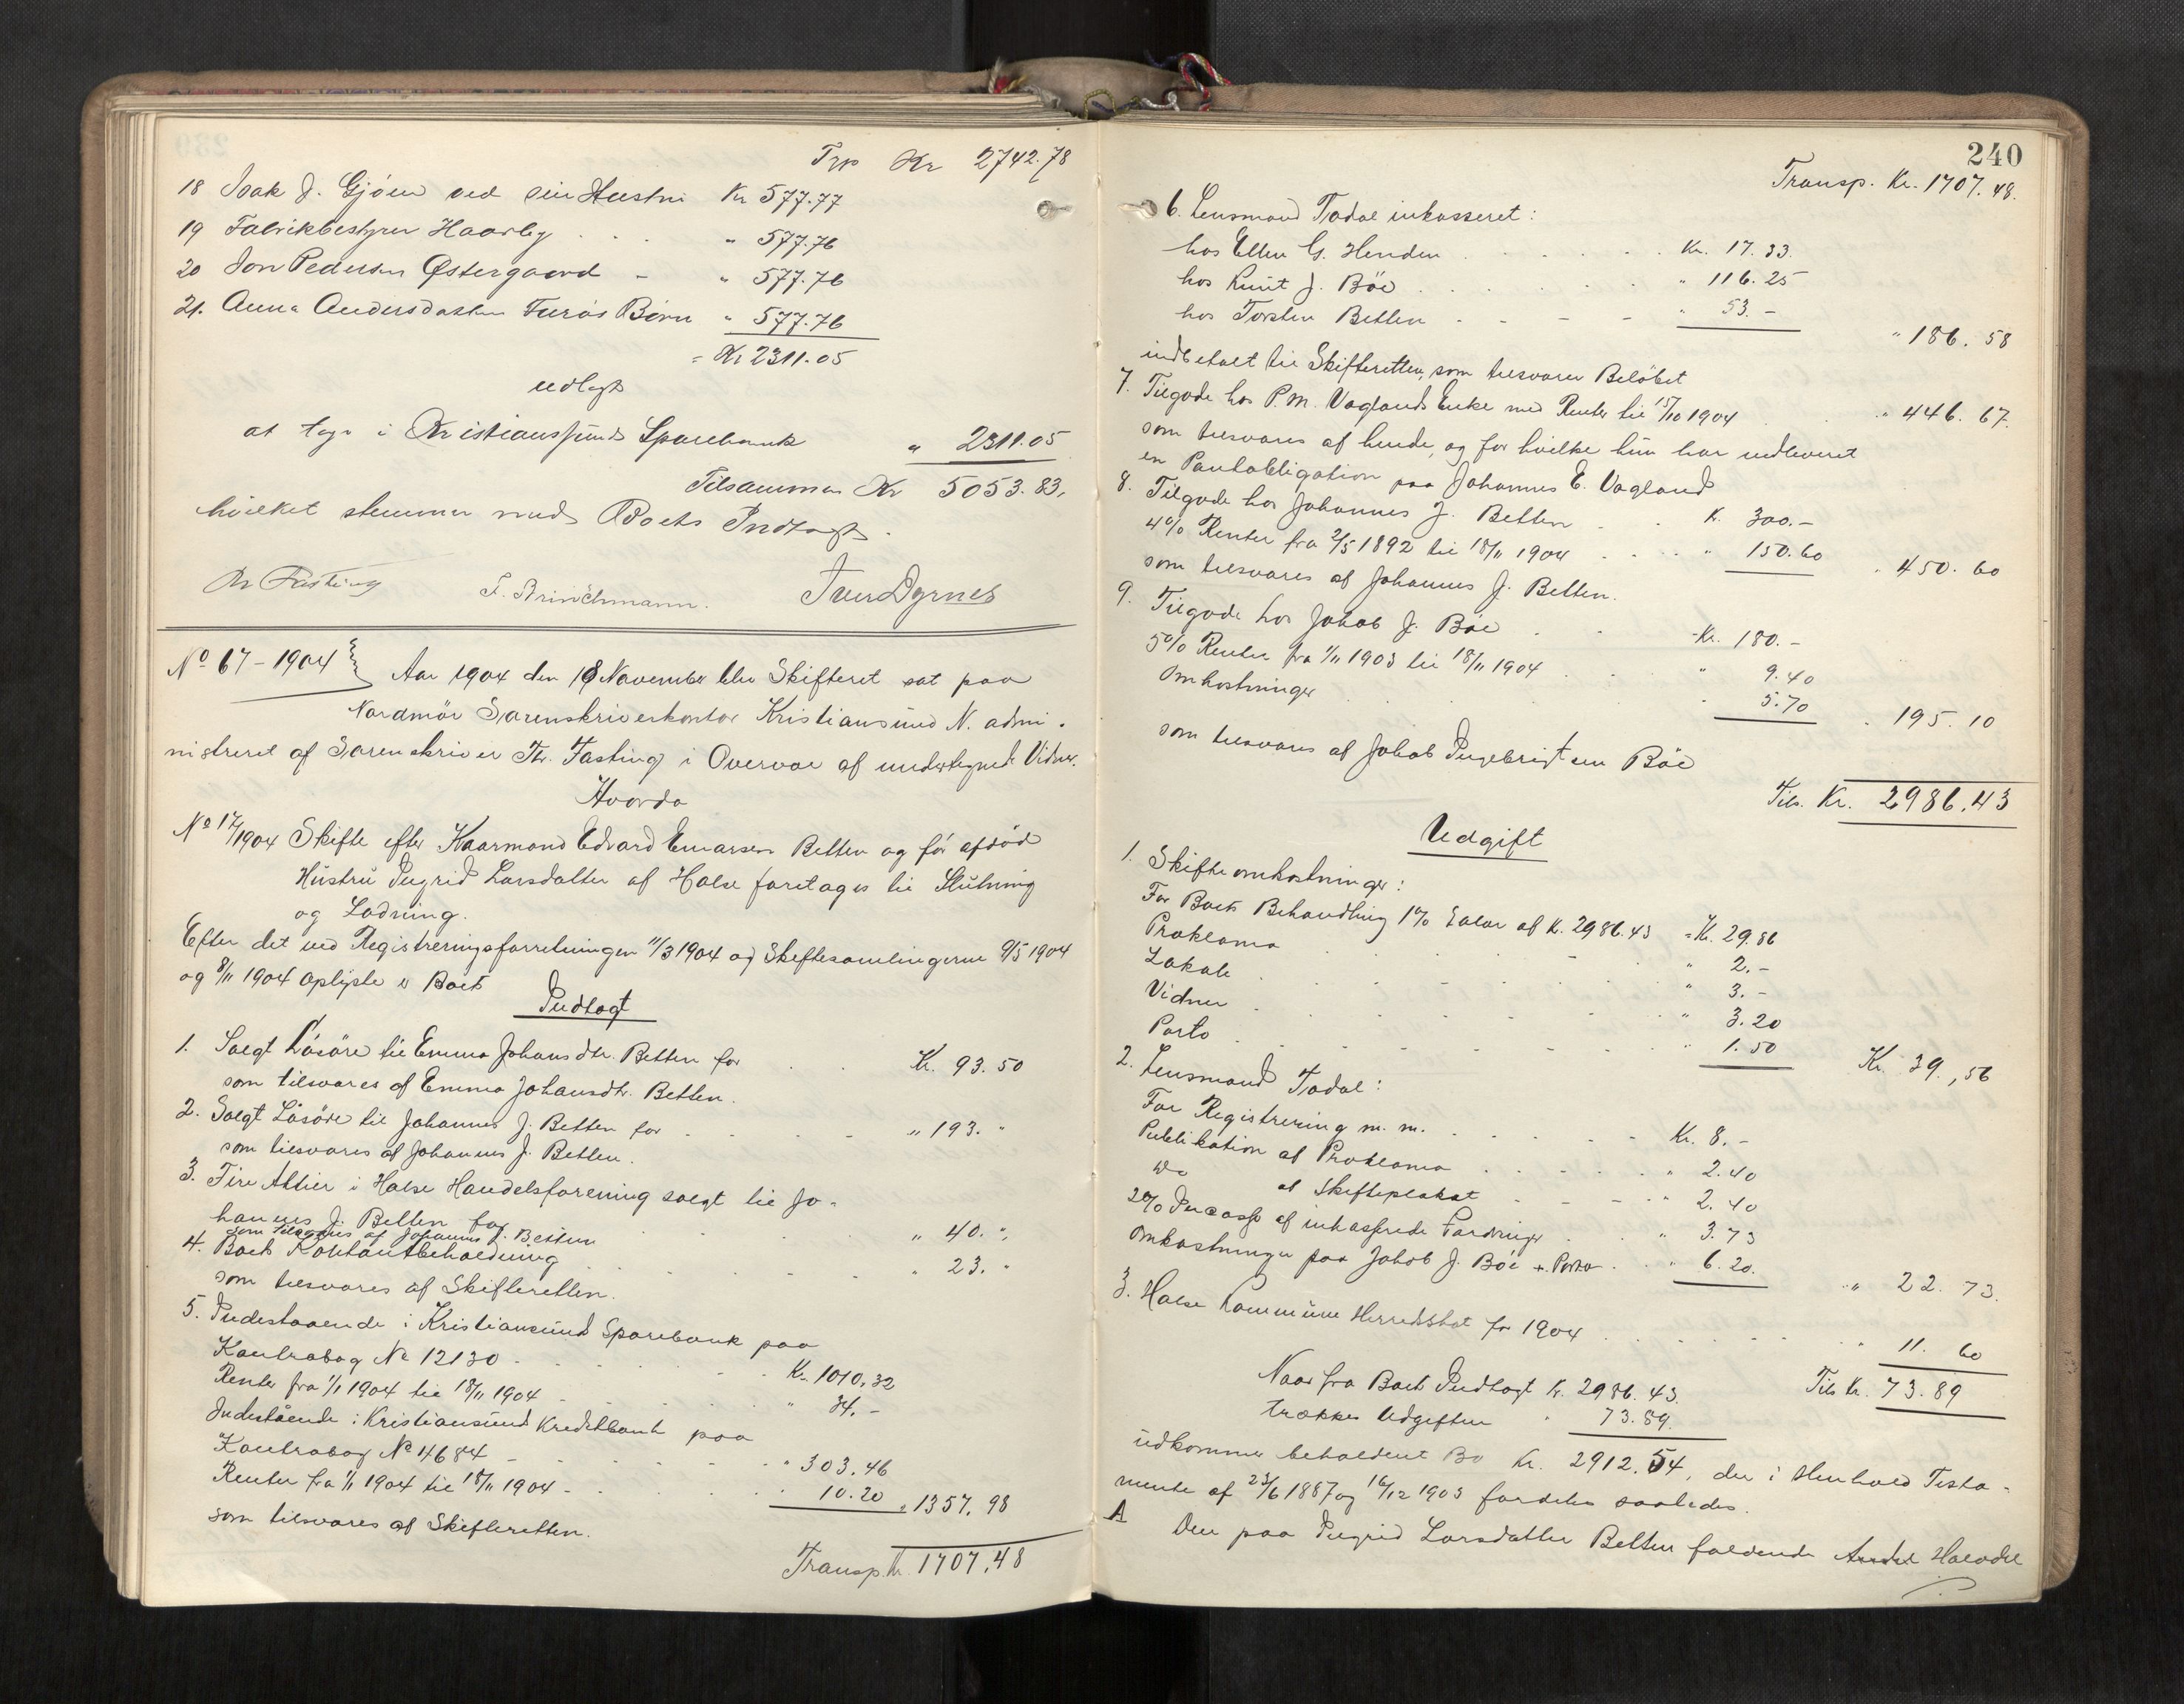 Trp Kr 2742.78
18 Isak J. Gjöen ved sin Hustru Kr 577.77
19 Fabrikbestyrer Haarby . . . " 577.76
20 Jon Pedersen Østergaard - " 577.76
21. Anna Andersdatter Furös Börn " 577.76
= Kr 2311.05
udlagt
at tage i Kristianssunds Sparebank " 2311.05
Tilsammen Kr 5053.83,
hvilket stemmer med Boets Indtægt.
Thr Fasting F. Brinchmann. Iver Dyrnes
No 67-1904 Aar 1904 den 18 November blev Skifteret sat paa
Nordmör Sorenskriverkontor Kristiansund N. admi-
nistreret af Sorenskriver Thr. Fasting i Overvær af undertegnede Vidner.
Hvorda
No 17/1904 Skifte efter Kaarmand Edvard Einarsen Betten og før afdöd
Hustru Ingrid Larsdatter af Halse foretages til Slutning
og Lodning.
Efter det ved Registreringsforretningen 11/3 1904 og Skiftesamlingerne 9/5 1904
og 8/11 1904 oplyste er Boets
Indtægt
1. Solgt Lösöre til Emma Johansdtr. Betten for . . Kr. 93.50
som tilsvares af Emma Johansdtr. Betten.
2. Solgt Lösöre til Johannes J. Betten for . . - - " 193. "
som tilsvares af Johannes J. Betten.
3. Fire Aktier i Halse Handelsforening solgt til Jo-
hannes J. Betten for . . . . " 40. "
som tilsvares af Johannes J. Betten
4. Boets Kontantbeholdning . . . - - " 23. "
som tilsvares af Skifteretten.
5. Indestaaende i Kristiansund Sparebank paa
Kontrabog No 12130 - . . . - - . Kr. 1010,32
Renter fra 1/1 1904 til 18/11 1904 - " 34. -
Indestående i Kristiansund Kreditbank paa
Kontrabog No 4684 - - - - - - " 303.46
Renter fra 1/1 1904 til 18/11 1904 - . . . . 10.20 " 1357,98
som tilsvares af Skifteretten.
Transp. Kr. 1707,48
240
Transp. Kr. 1707.48.
6. Lensmand Todal inkasseret:
hos Ellen G. Henden . . . . . Kr. 17.33.
hos Knut J. Böe . . . . . . " 116.25
hos Torsten Betten - - - - " 53.- " 186.58
indbetalt til Skifteretten, som tilsvarer Belöbet
7. Tilgode hos P.M. Vaglands Enke med Renter til 15/10 1904 . . " 446.67.
som tilsvares af hende, og for hvilke hun har indleveret
en Pantobligation paa Johannes E. Vagland
8. Tilgode hos Johannes J. Betten . . K. 300.-
4% Renter fra 2/5 1892 til 18/11 1904 . . . . " 150.60 " 450.60
som tilsvares af Johannes J. Betten.
9. Tilgode hos Jakob J. Böe . . Kr. 180.-
5% Renter fra 1/11 1903 til 18/11 1904 . . " 9.40
Omkostninger . . . . . . " 5.70 " 195.10
som tilsvares af Jakob Ingebrigtsen Böe
Tils. Kr. 2986,43
Udgift
1. Skifteomkostninger:
For Boets Behandling 1% Salær af K. 2986.43 = Kr. 29.86
Proklama . . . . - . " 2.-
Lokale . . . . . . . " 3.-
Vidner . . . . . . . " 3.20
Porto . - - - - - . " 1.50 Kr. 39,56
2. Lensmand Todal:
For Registrering m.m. . . . . - - Kr. 8.-
Publikation af Proklama . . . . . " 2.40
Do af Skifteplakat - - - - " 2.40
2% Incasso af inkasserede Fordringer . . " 3.73
Omkostninger paa Jakob J. Böe + Porto . . " 6.20. " 22.73.
3. Halse Kommune Herredskat for 1904 . . . . . . " 11.60
Tils Kr. 73.89
Naar fra Boets Indtægt Kr. 2986.43.
trækkes Udgiften " 73.89.
udkommer beholdent Bo Kr. 2912.54, der i Henhold Testa-
mente af 23/6 1887 og 16/12 1903 fordeles saaledes.
A Den paa Ingrid Larsdatter Betten faldende Andel Halvdel